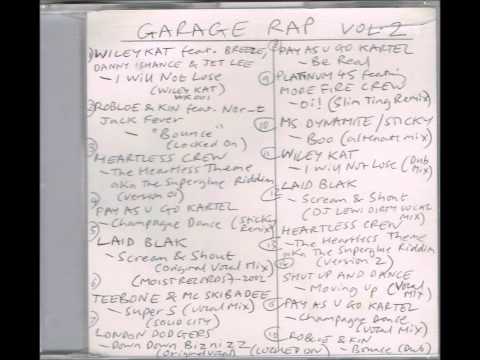 GARAGE RAP VOL.2
1) WILEY KAT feat. BREEZE,
DANNY ISHANCE & JET LEE
- I Will Not Lose
(WILEY KAT)
WK001
2 ROBLOE & KIN feat. Nor-t
Jack Fever
- "Bounce"
(Locked On)
3 HEARTLESS CREW
- The Heartless Theme
aka The Superglue Riddim
(Version 01)
4 PAY AS U GO KARTEL
- Champagne Dance (Sticky
Remix)
5 LAID BLAK
- Scream & Shout
(Original Vocal Mix)
(MOIST RECORDS 7-2002)
6 TEEBONE & MC SKIBADEE
- Super S (Vocal Mix)
(SOLID CITY)
7 LONDON DODGERS
- Down Down Biznizz
(Original Vocal) (LOCKED ON)
8 PAY AS U GO KARTEL
- Be Real
9 PLATINUM 45 featuring
MORE FIRE CREW
- Oi! (Slim Ting Remix)
10 MS DYNAMITE/STICKY
- Boo (alternate mix)
11 WILEY KAT
- I Will Not Lose (Dub
Mix)
12 LAID BLAK
- Scream & Shout
(DJ LEWI DIRTY VOCAL
mix)
13 HEARTLESS CREW
- The Heartless Theme
aka The Superglue Riddim
(Version 2)
14 SHUT UP AND DANCE
- Moving Up (Vocal
Mix)
15 PAY AS U GO KARTEL
- Champagne Dance
(Vocal Mix)
16 ROBLOE & KIN
- Bounce (Dub)